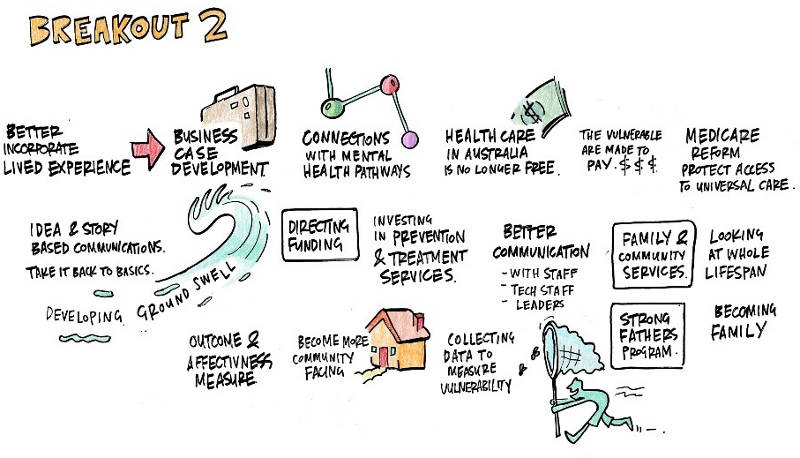 BREAKOUT 2
BETTER
INCORPORATE
LIVED EXPERIENCE
BUSINESS
CASE
DEVELOPMENT
CONNECTIONS
WITH MENTAL
HEALTH PATHWAYS
HEALTH CARE
IN AUSTRALIA
IS NO LONGER FREE.
$
THE VULNERABLE
ARE MADE TO
PAY. $ $ $
MEDICARE
REFORM
PROTECT ACCESS
TO UNIVERSAL CARE.
IDEA & STORY
BASED COMMUNICATIONS.
TAKE IT BACK TO BASICS.
DEVELOPING
GROUND SWELL
DIRECTING
FUNDING
INVESTING
IN PREVENTION
& TREATMENT
SERVICES.
BETTER
COMMUNICATION
- WITH STAFF
- TECH STAFF
- LEADERS
FAMILY &
COMMUNITY
SERVICES.
LOOKING
AT WHOLE
LIFESPAN
OUTCOME &
AFFECTIVNESS
MEASURE
BECOME MORE
COMMUNITY
FACING
COLLECTING
DATA TO
MEASURE
VULNERABILITY
STRONG
FATHERS
PROGRAM.
BECOMING
FAMILY